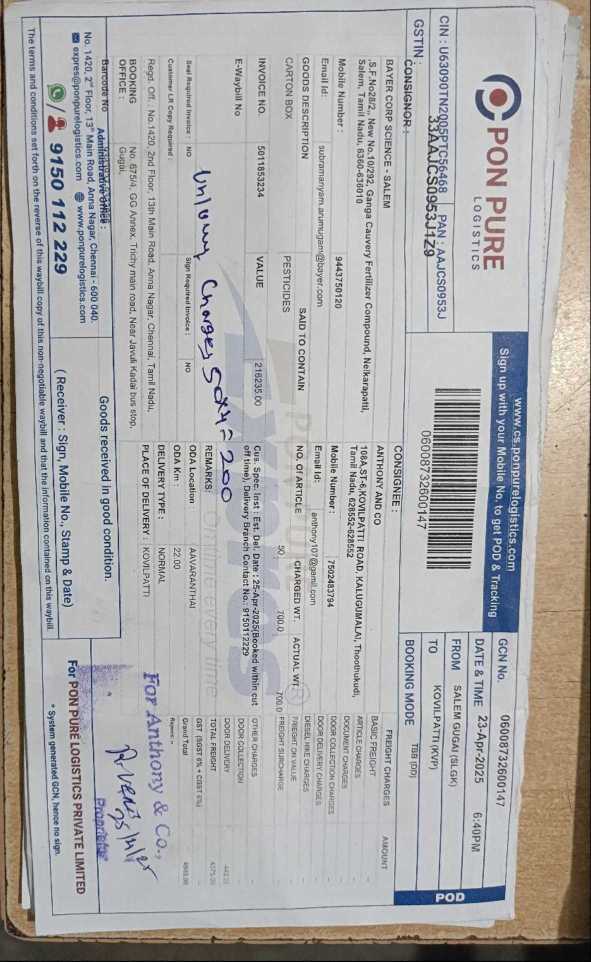 PON PURE
LOGISTICS
www.cs.ponpurelogistics.com
Sign up with your Mobile No. to get POD & Tracking
CIN : U63090TN2005PTC56468 PAN : AAJCS0953J
GSTIN : 33AAJCS0953J1Z9
06008732600147
GCN No. 06008732600147
DATE & TIME 23-Apr-2025 6:40PM
FROM SALEM GUGAI (SLGK)
TO KOVILPATTI (KVP)
BOOKING MODE TBB (DD)
POD
CONSIGNOR :
BAYER CORP SCIENCE - SALEM
,S.F.No28/2,, New No.10/292, Ganga Cauvery Fertilizer Compound, Neikarapatti,
Salem, Tamil Nadu, 6360-636010
Mobile Number : 9443750120
Email Id: subramanyam.arumugam@bayer.com
CONSIGNEE :
ANTHONY AND CO
108A,ST-6,KOVILPATTI ROAD, KALUGUMALAI, Thoothukudi,
Tamil Nadu, 628552-628552
Mobile Number : 7502483794
Email Id: anthony107@gamil.com
GOODS DESCRIPTION SAID TO CONTAIN NO. OF ARTICLE CHARGED WT. ACTUAL WT
CARTON BOX PESTICIDES 50 700.0 700.0
INVOICE NO. 5011853234 VALUE 216235.00
E-Waybill No
Cus. Spec. Inst : Est. Del. Date : 25-Apr-2025(Booked within cut
off time), Delivery Branch Contact No.: 9150112229
REMARKS:
Unloading Charges 50x4=200
Seal Required Invoice : NO Sign Required Invoice : NO
Customer LR Copy Required :
ODA Location AAVARANTHAI
ODA Km : 22.00
Regd. Off. No.1420, 2nd Floor, 13th Main Road, Anna Nagar, Chennai, Tamil Nadu,
BOOKING OFFICE : No. 675/4, GG Annex, Trichy main road, Near Javuli Kadai bus stop,
Gugai,
DELIVERY TYPE : NORMAL
PLACE OF DELIVERY : KOVILPATTI
FREIGHT CHARGES AMOUNT
BASIC FREIGHT
ARTICLE CHARGES
DOCUMENT CHARGES
DOOR COLLECTION CHARGES
DOOR DELIVERY CHARGES
DIESEL HIKE CHARGES
FREIGHT ON VALUE
FREIGHT SURCHARGE
OTHER CHARGES
DOOR COLLECTION
DOOR DELIVERY
TOTAL FREIGHT
GST (SGST 6% + CGST 6%)
Grand Total
Rupees :-
Barcode No
Administrative Office :
No. 1420, 2nd Floor, 13th Main Road, Anna Nagar, Chennai - 600 040.
expres@ponpurelogistics.com www.ponpurelogistics.com
9150 112 229
Goods received in good condition.
( Receiver : Sign, Mobile No., Stamp & Date)
For Anthony & Co.,
25/4/25
Proprietor
For PON PURE LOGISTICS PRIVATE LIMITED
* System generated GCN, hence no sign.
The terms and conditions set forth on the reverse of this waybill copy of this non-negotiable waybill and that the information contained on this waybill.